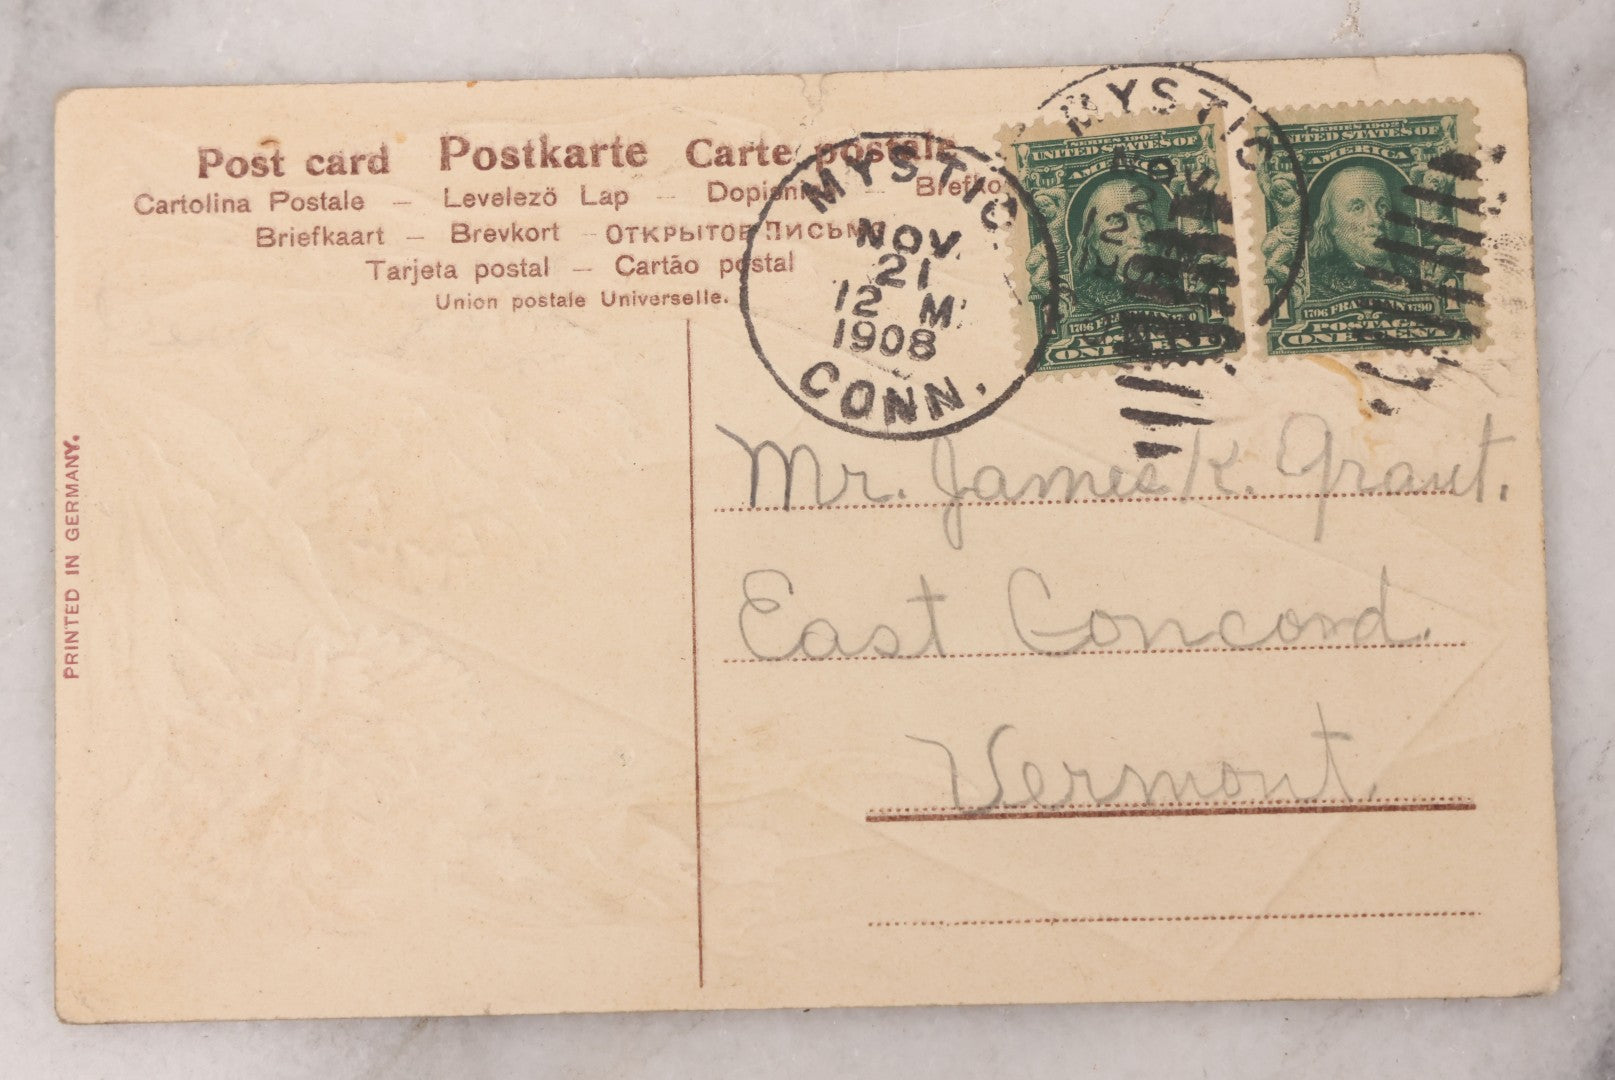 Post card Postkarte Carte postale
Cartolina Postale – Levelezö Lap – Dopisnice – Brefko
Briefkaart – Brevkort – ОТКРЫТОЕ ПИСЬМО
Tarjeta postal – Cartão postal
Union postale Universelle.
PRINTED IN GERMANY.
MYSTIC
NOV.
21
12 M
1908
CONN.
MYSTIC
NOV.
21
12
SERIES 1902
UNITED STATES OF
AMERICA
1706 FRANKLIN 1790
POSTAGE
1 ONE CENT 1
SERIES 1902
UNITED STATES OF
AMERICA
1706 FRANKLIN 1790
POSTAGE
1 ONE CENT 1
Mr. James K. Grant.
East Concord.
Vermont.